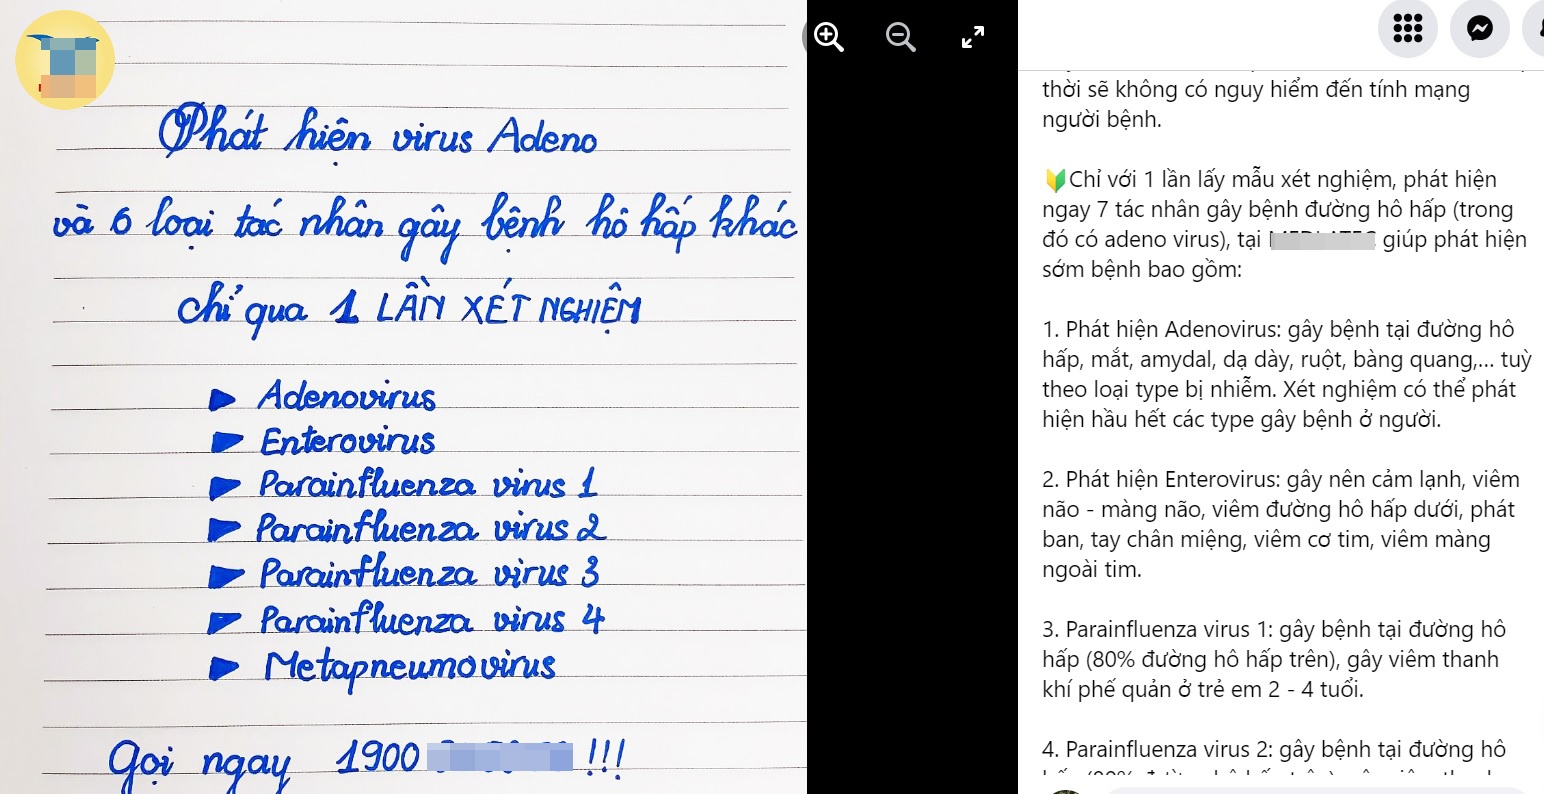 Phát hiện virus Adeno
và 6 loại tác nhân gây bệnh hô hấp khác
chỉ qua 1 LẦN XÉT NGHIỆM
Adenovirus
Enterovirus
Parainfluenza virus 1
Parainfluenza virus 2
Parainfluenza virus 3
Parainfluenza virus 4
Metapneumovirus
Gọi ngay 1900 !!!
thời sẽ không có nguy hiểm đến tính mạng
người bệnh.
Chỉ với 1 lần lấy mẫu xét nghiệm, phát hiện
ngay 7 tác nhân gây bệnh đường hô hấp (trong
đó có adeno virus), tại giúp phát hiện
sớm bệnh bao gồm:
1. Phát hiện Adenovirus: gây bệnh tại đường hô
hấp, mắt, amydal, dạ dày, ruột, bàng quang,... tuỳ
theo loại type bị nhiễm. Xét nghiệm có thể phát
hiện hầu hết các type gây bệnh ở người.
2. Phát hiện Enterovirus: gây nên cảm lạnh, viêm
não - màng não, viêm đường hô hấp dưới, phát
ban, tay chân miệng, viêm cơ tim, viêm màng
ngoài tim.
3. Parainfluenza virus 1: gây bệnh tại đường hô
hấp (80% đường hô hấp trên), gây viêm thanh
khí phế quản ở trẻ em 2 - 4 tuổi.
4. Parainfluenza virus 2: gây bệnh tại đường hô